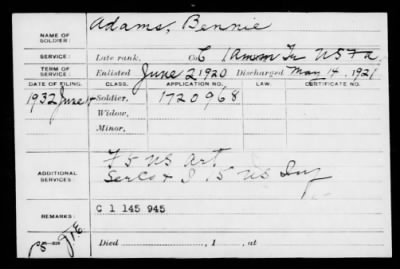 NAME OF SOLDIER: Adams, Bennie
SERVICE: Late rank, Co C 1 Ammn Tn US F a
TERM OF SERVICE: Enlisted June 2 1920 Discharged May 14, 1921
DATE OF FILING. CLASS. APPLICATION NO. LAW. CERTIFICATE NO.
1932 June Soldier, 1720968
Widow,
Minor,
ADDITIONAL SERVICES: F 5 US art
Ser Co & I 15 US Inf
REMARKS: C 1 145 945
Died , 1 , at